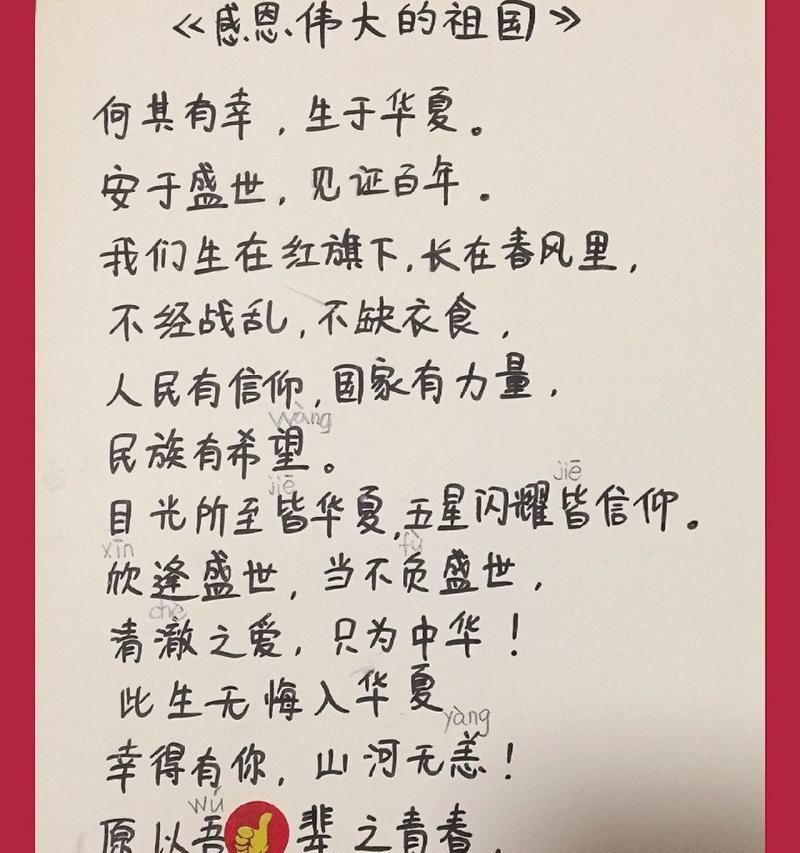 《感恩伟大的祖国》
何其有幸，生于华夏。
安于盛世，见证百年。
我们生在红旗下，长在春风里，
不经战乱，不缺衣食，
人民有信仰，国家有力量，
wàng
民族有希望。
jiē jiē
目光所至皆华夏，五星闪耀皆信仰。
xīn fù
欣逢盛世，当不负盛世，
chè
清澈之爱，只为中华！
此生无悔入华夏
yàng
幸得有你，山河无恙！
wú
愿以吾辈之青春，